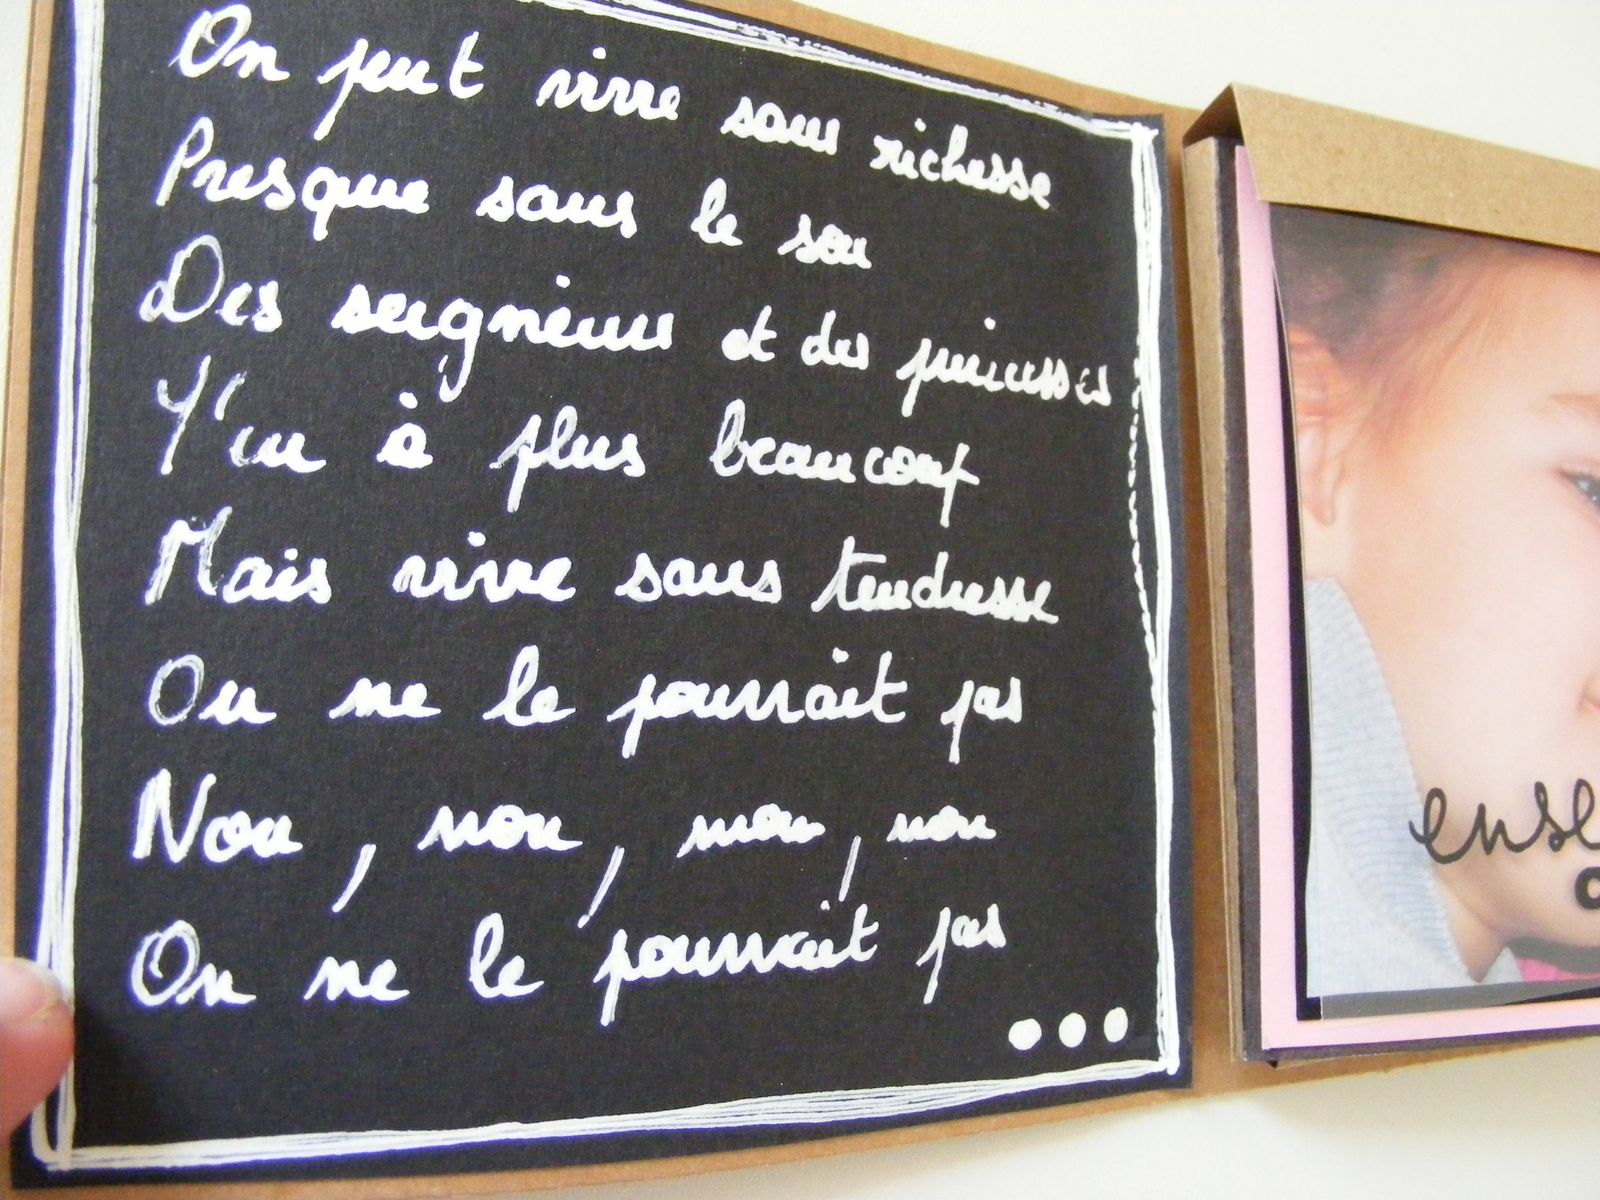 On peut vivre sans richesse
Presque sans le sou
Des seigneurs et des princesses
Y'en a plus beaucoup
Mais vivre sans tendresse
On ne le pourrait pas
Non, non, non, non
On ne le pourrait pas
...